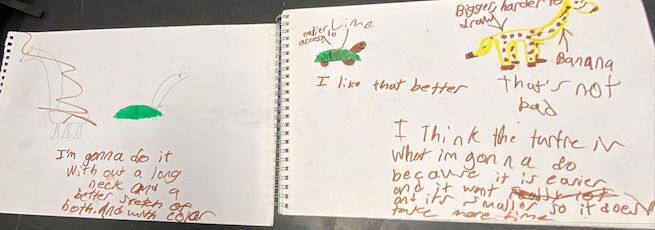 I'm gonna do it
With out a long
neck and a
better sketch of
both. And with color
easier Lime
access to
I like that better
Bigger, harder to
draw
Banana
that's not
bad
I Think the turtle is
What im gonna do
because it is easier
and it wont
and its smaller so it doesn't
take more time